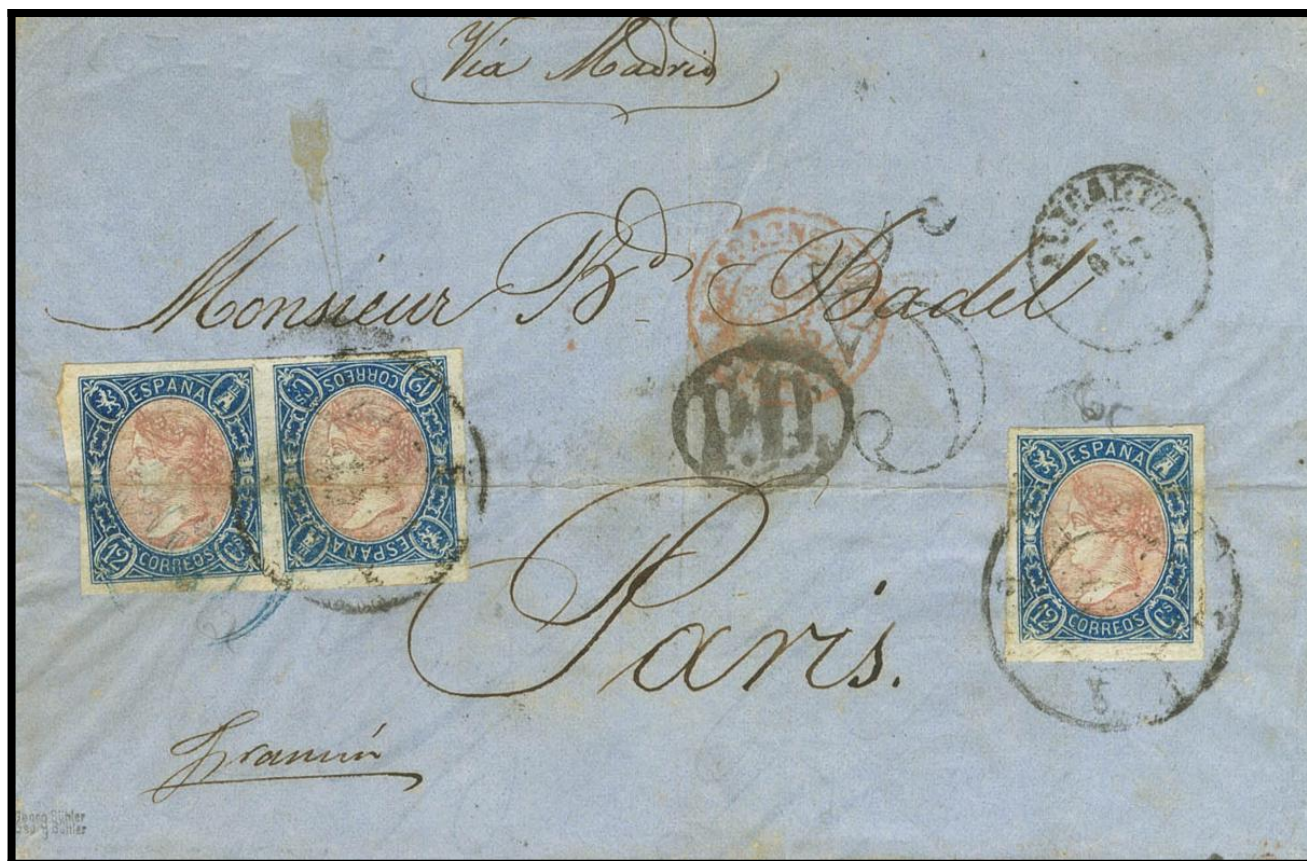 Via Madrid
Monsieur Bd. Badel
ESPAÑA
12 CORREOS Cs
ESPAÑA
12 CORREOS Cs
P.D.
ESPAÑA
12 CORREOS Cs
Paris.
Georg Bühler
Georg Bühler